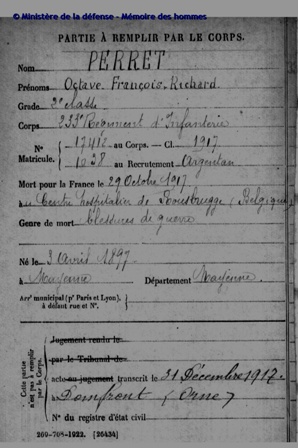 © Ministère de la défense - Mémoire des hommes
PARTIE À REMPLIR PAR LE CORPS.
Nom PERRET
Prénoms Octave François Richard
Grade 2e classe
Corps 233e Régiment d'Infanterie
N° 17412 au Corps. — Cl. 1917
Matricule. 1038 au Recrutement Argentan
Mort pour la France le 29 Octobre 1917
au Centre hospitalier de (Belgique)
Genre de mort blessures de guerre
Né le 3 Avril 1897
à Mayenne Département Mayenne
Arrt municipal (pr Paris et Lyon),
à défaut rue et N°.
Cette partie n'est pas à remplir par le Corps.
Jugement rendu le
par le Tribunal de
acte ou jugement transcrit le 31 Décembre 1917
à Domfront (Orne)
N° du registre d'état civil
209-708-1922. [26434]